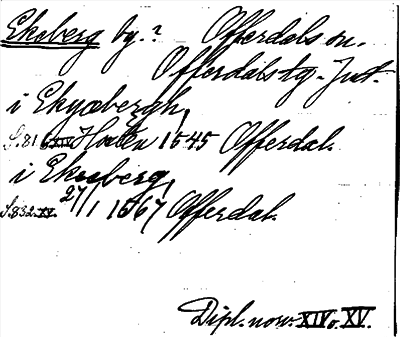 Ekeberg by.? Offerdals sn.
Offerdals tg. Jmt.
i Ekyæbergh,
S. 816 XIV 1545 Offerdal.
i Ekeberg,
S. 832. XV. 27/1 1567 Offerdal.
Dipl. norv. XIV o. XV.